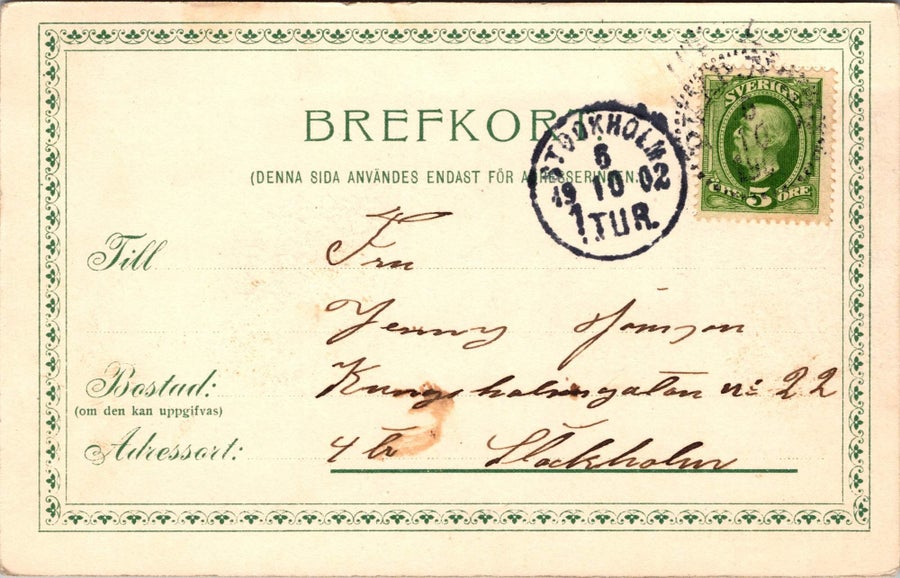 BREFKORT
(DENNA SIDA ANVÄNDES ENDAST FÖR ADRESSERINGEN.)
STOCKHOLM
6
19 10 02
1.TUR.
SVERIGE
5 ÖRE
Till Fru
Jenny Jönsson
Bostad: Kungsholmsgatan no 22
(om den kan uppgifvas)
Adressort: 4 tr Stockholm